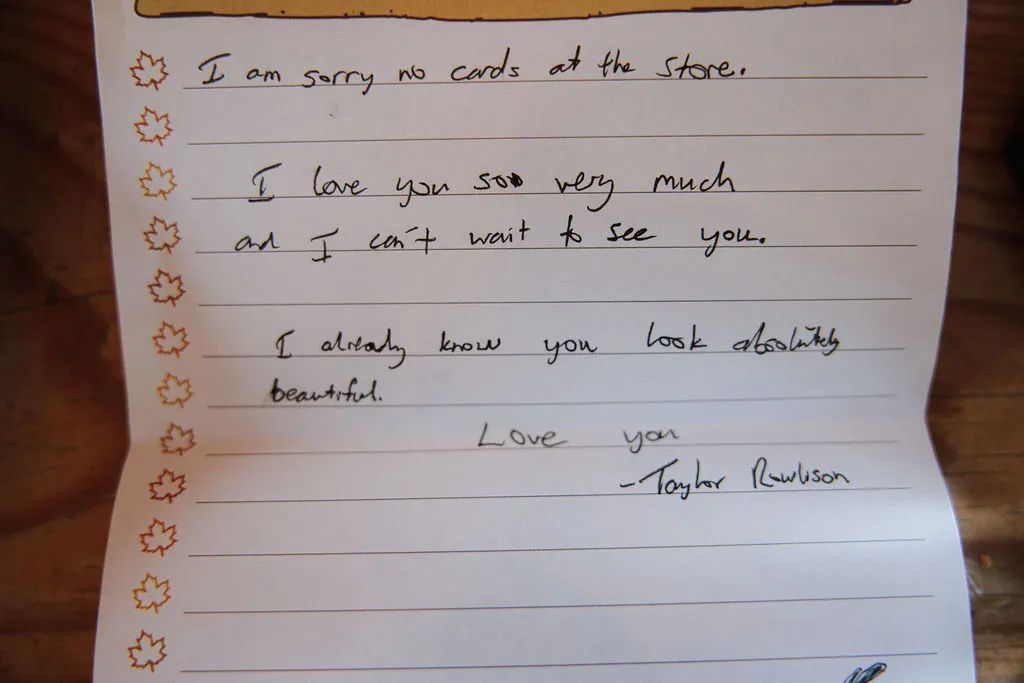 I am sorry no cards at the store.
I love you soo very much
and I can't wait to see you.
I already know you look absolutely
beautiful.
Love you
-Taylor Rawlison